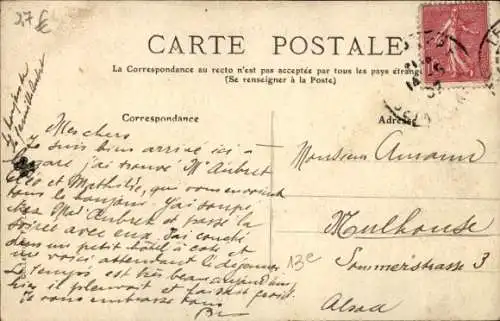 27 £
CARTE POSTALE
La Correspondance au recto n'est pas acceptée par tous les pays étrang
(Se renseigner à la Poste)
Correspondance
Adresse
Mes chers
Je suis bien arrivé ici à
gare j'ai trouvé Mr Aubret
et Mathilde, qui vous envoient
tous le bonjour. J'ai soupé
chez Mad. Aubret et passé la
soirée avec eux. J'ai couché
dans un petit hôtel à côté et
me voici attendant le déjeuner
Le temps est très beau aujourd'hui
hier il pleuvait et faisait froid.
Je vous embrasse tous
Monsieur
Mulhouse
Sommerstrasse 3
Alsace
13e